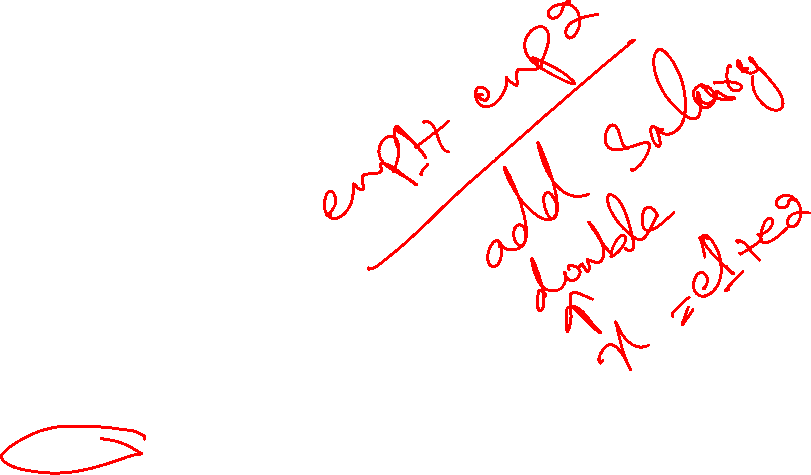 emp1+ emp2
add salary
double
x = e1+e2